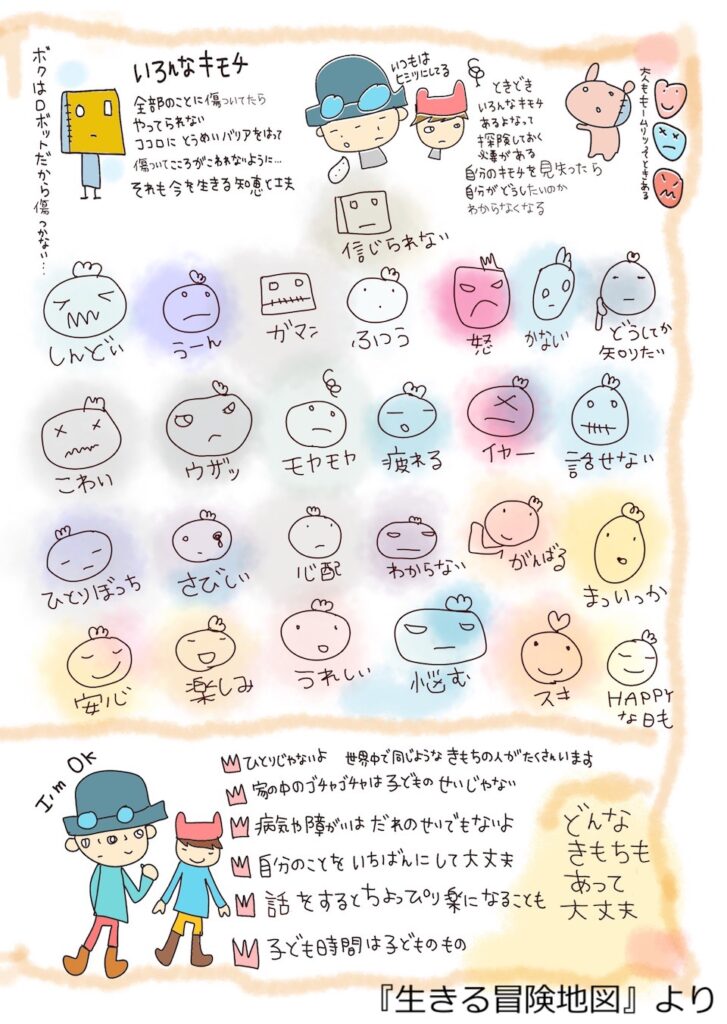 ボクはロボットだから傷つかない…
いろんなキモチ
全部のことに傷ついてたら
やってられない
ココロにとうめいバリアをはって
傷ついてこころがこわれないように…
それも今を生きる知恵と工夫
いつもは
ヒミツにしてる
ときどき
いろんなキモチ
あるよなって
探険しておく
必要がある
自分のキモチを見失ったら
自分がどうしたいのか
わからなくなる
大人も
ときある
信じられない
しんどい
うーん
ガマン
ふつう
怒
かない
どうしてか
知りたい
こわい
ウザッ
モヤモヤ
疲れる
イヤー
話せない
ひとりぼっち
さびしい
心配
わからない
がんばる
まっいっか
安心
楽しみ
うれしい
悩む
スキ
HAPPY
な日も
I'm OK
ひとりじゃないよ 世界中で同じような きもちの人がたくさんいます
家の中のゴチャゴチャは子どものせいじゃない
病気や障がいは だれのせいでもないよ
自分のことを いちばんにして大丈夫
話をするとちょっぴり楽になることも
子ども時間は子どものもの
どんな
きもちも
あって
大丈夫
『生きる冒険地図』より